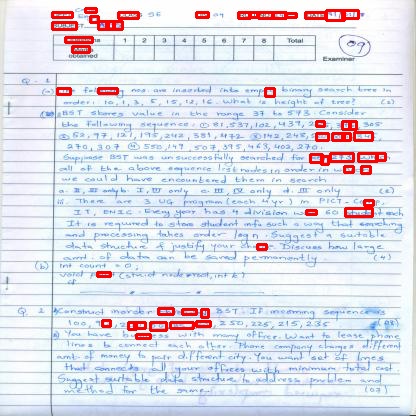 1 2 3 4 5 6 7 8 Total
obtained
Examiner
09
Q. 1
(a) nos. are inserted into binary search tree in
order: 10, 1, 3, 5, 15, 12, 16. What is height of tree? (2)
BST stores value in the range 37 to 573. Consider
the following sequence. ① 81, 537, 102, 439, 305
② 52, 97, 121, 195, 242, 381, 472 ③ 142, 248,
270, 307 ④ 550, 149, 507, 395, 463, 402, 270.
Suppose BST was unsuccessfully searched for
all of the above sequence list nodes in order in
we could have encountered them in search
a. II, III only b. I, III only c. III, IV only d. III only (2)
iii. There are 3 UG program (each 4 yr) in PICT- Comp,
IT, EN&C. Every year has 4 division 60 student each
It is required to store student info such a way that searching
and processing takes order log n. Suggest a suitable
data structure & justify your. Discuss how large
amt. of data can be saved permanently (4)
(b) int count = 0;
void (struct node *root, int k)
if
Q. 2 Construct inorder BST. If incoming sequence is
100, 250, 225, 215, 235
You have with many office. Want to lease phone
lines to connect each other. Phone company charges different
amt of money to pair different city. You want set of lines
that connects all your offices with minimum total cost.
Suggest suitable data structure to address problem and
method for the same. (03)